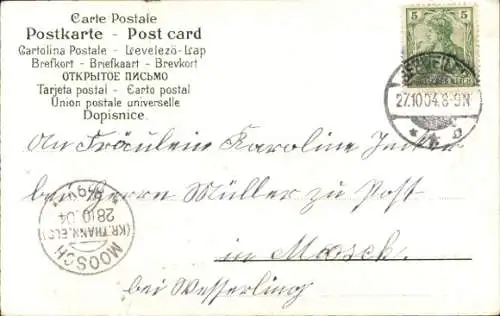 Carte Postale
Postkarte - Post card
Cartolina Postale - Levelező-Lap
Brefkort - Briefkaart - Brevkort
ОТКРЫТОЕ ПИСЬМО
Tarjeta postal - Carto postal
Union postale universelle
Dopisnice.
5 5
DEUTSCHES REICH
27.10 04.8-9N
An Fräulein Karoline
bei Herrn Müller zu Post
in Moosch.
bei Wesserling
MOOSCH
(KR.THANN.ELS)
28.10.04